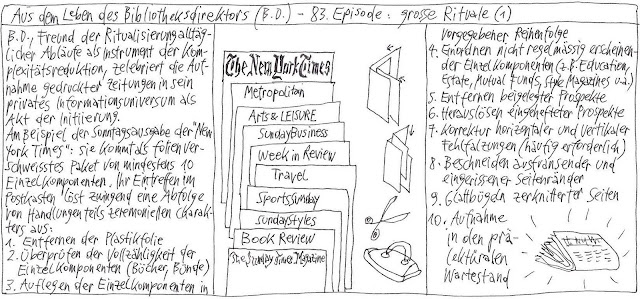 Aus dem Leben des Bibliotheksdirektors (B.D.) - 83. Episode: grosse Rituale (1)
B.D., Freund der Ritualisierung alltäg-
licher Abläufe als Instrument der Kom-
plexitätsreduktion, zelebriert die Auf-
nahme gedruckter Zeitungen in sein
privates Informationsuniversum als
Akt der Initiierung.
Am Beispiel der Sonntagsausgabe der "New
York Times": sie kommt als folienver-
schweisstes Paket von mindestens 10
Einzelkomponenten. Ihr Eintreffen im
Postkasten löst zwingend eine Abfolge
von Handlungen teils zeremoniellen Charak-
ters aus:
1. Entfernen der Plastikfolie
2. Überprüfen der Vollzähligkeit der
Einzelkomponenten (Bücher, Bünde)
3. Auflegen der Einzelkomponenten in
The New York Times
Metropolitan
Arts & LEISURE
Sunday Business
Week in Review
Travel
SportsSunday
SundayStyles
Book Review
The Sunday Times Magazine
vorgegebener Reihenfolge
4. Einordnen nicht regelmässig erscheinen-
der Einzelkomponenten (z.B. Education,
Estate, Mutual Funds, Style Magazines u.a.)
5. Entfernen beigelegter Prospekte
6. Herauslösen eingehefteter Prospekte
7. Korrektur horizontaler und vertikaler
Fehlfalzungen (häufig erforderlich)
8. Beschneiden ausfransender und
eingerissener Seitenränder
9. Glattbügeln zerknitterter Seiten
10. Aufnahme
in den prä-
lektüralen
Wartestand